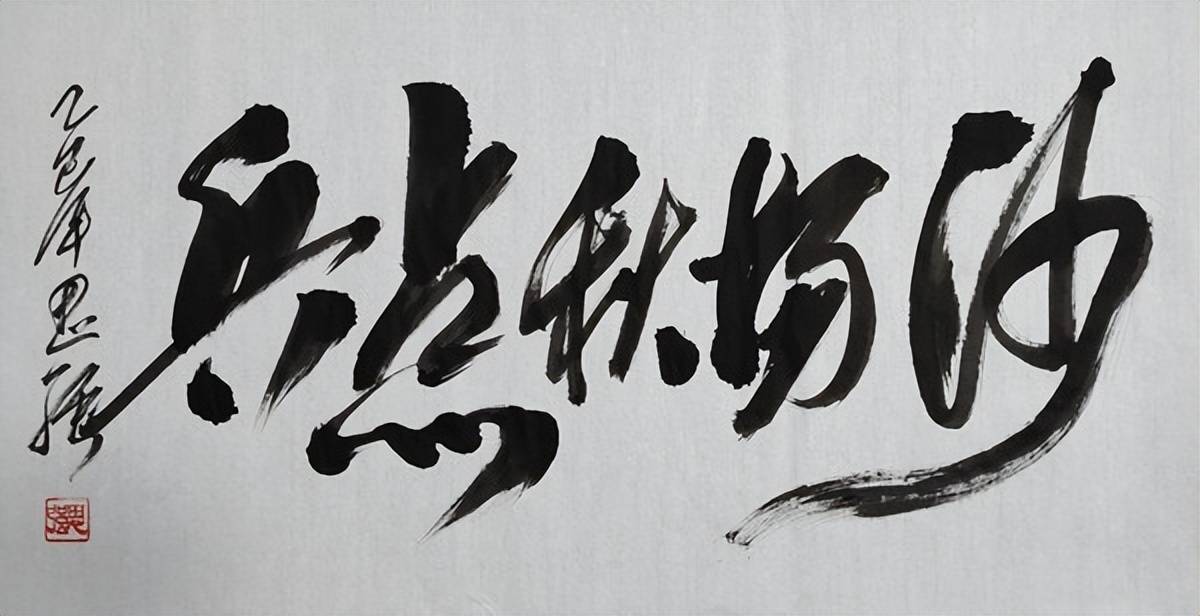 沙场秋点兵
乙巳年